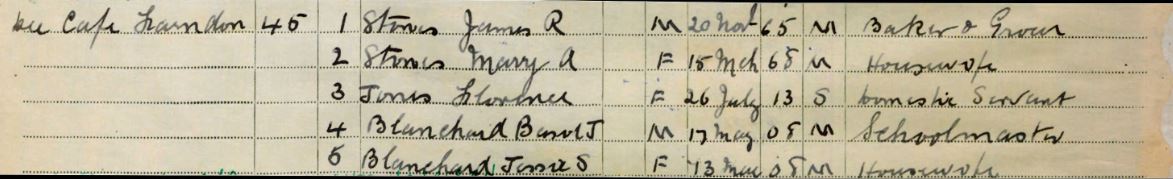 Cafe Farndon 45 1 Stones James R M 20 Nov 65 M Baker & Grocer
2 Stones Mary A F 15 Mch 68 M Housewife
3 Jones Florence F 26 July 13 S Domestic Servant
4 Blanchard Basil J M 17 May 08 M Schoolmaster
5 Blanchard Jessie S F 13 Mar 08 M Housewife